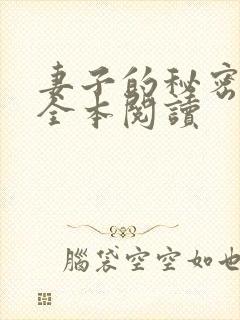 妻子的秘密
全本閱讀
腦袋空空如也